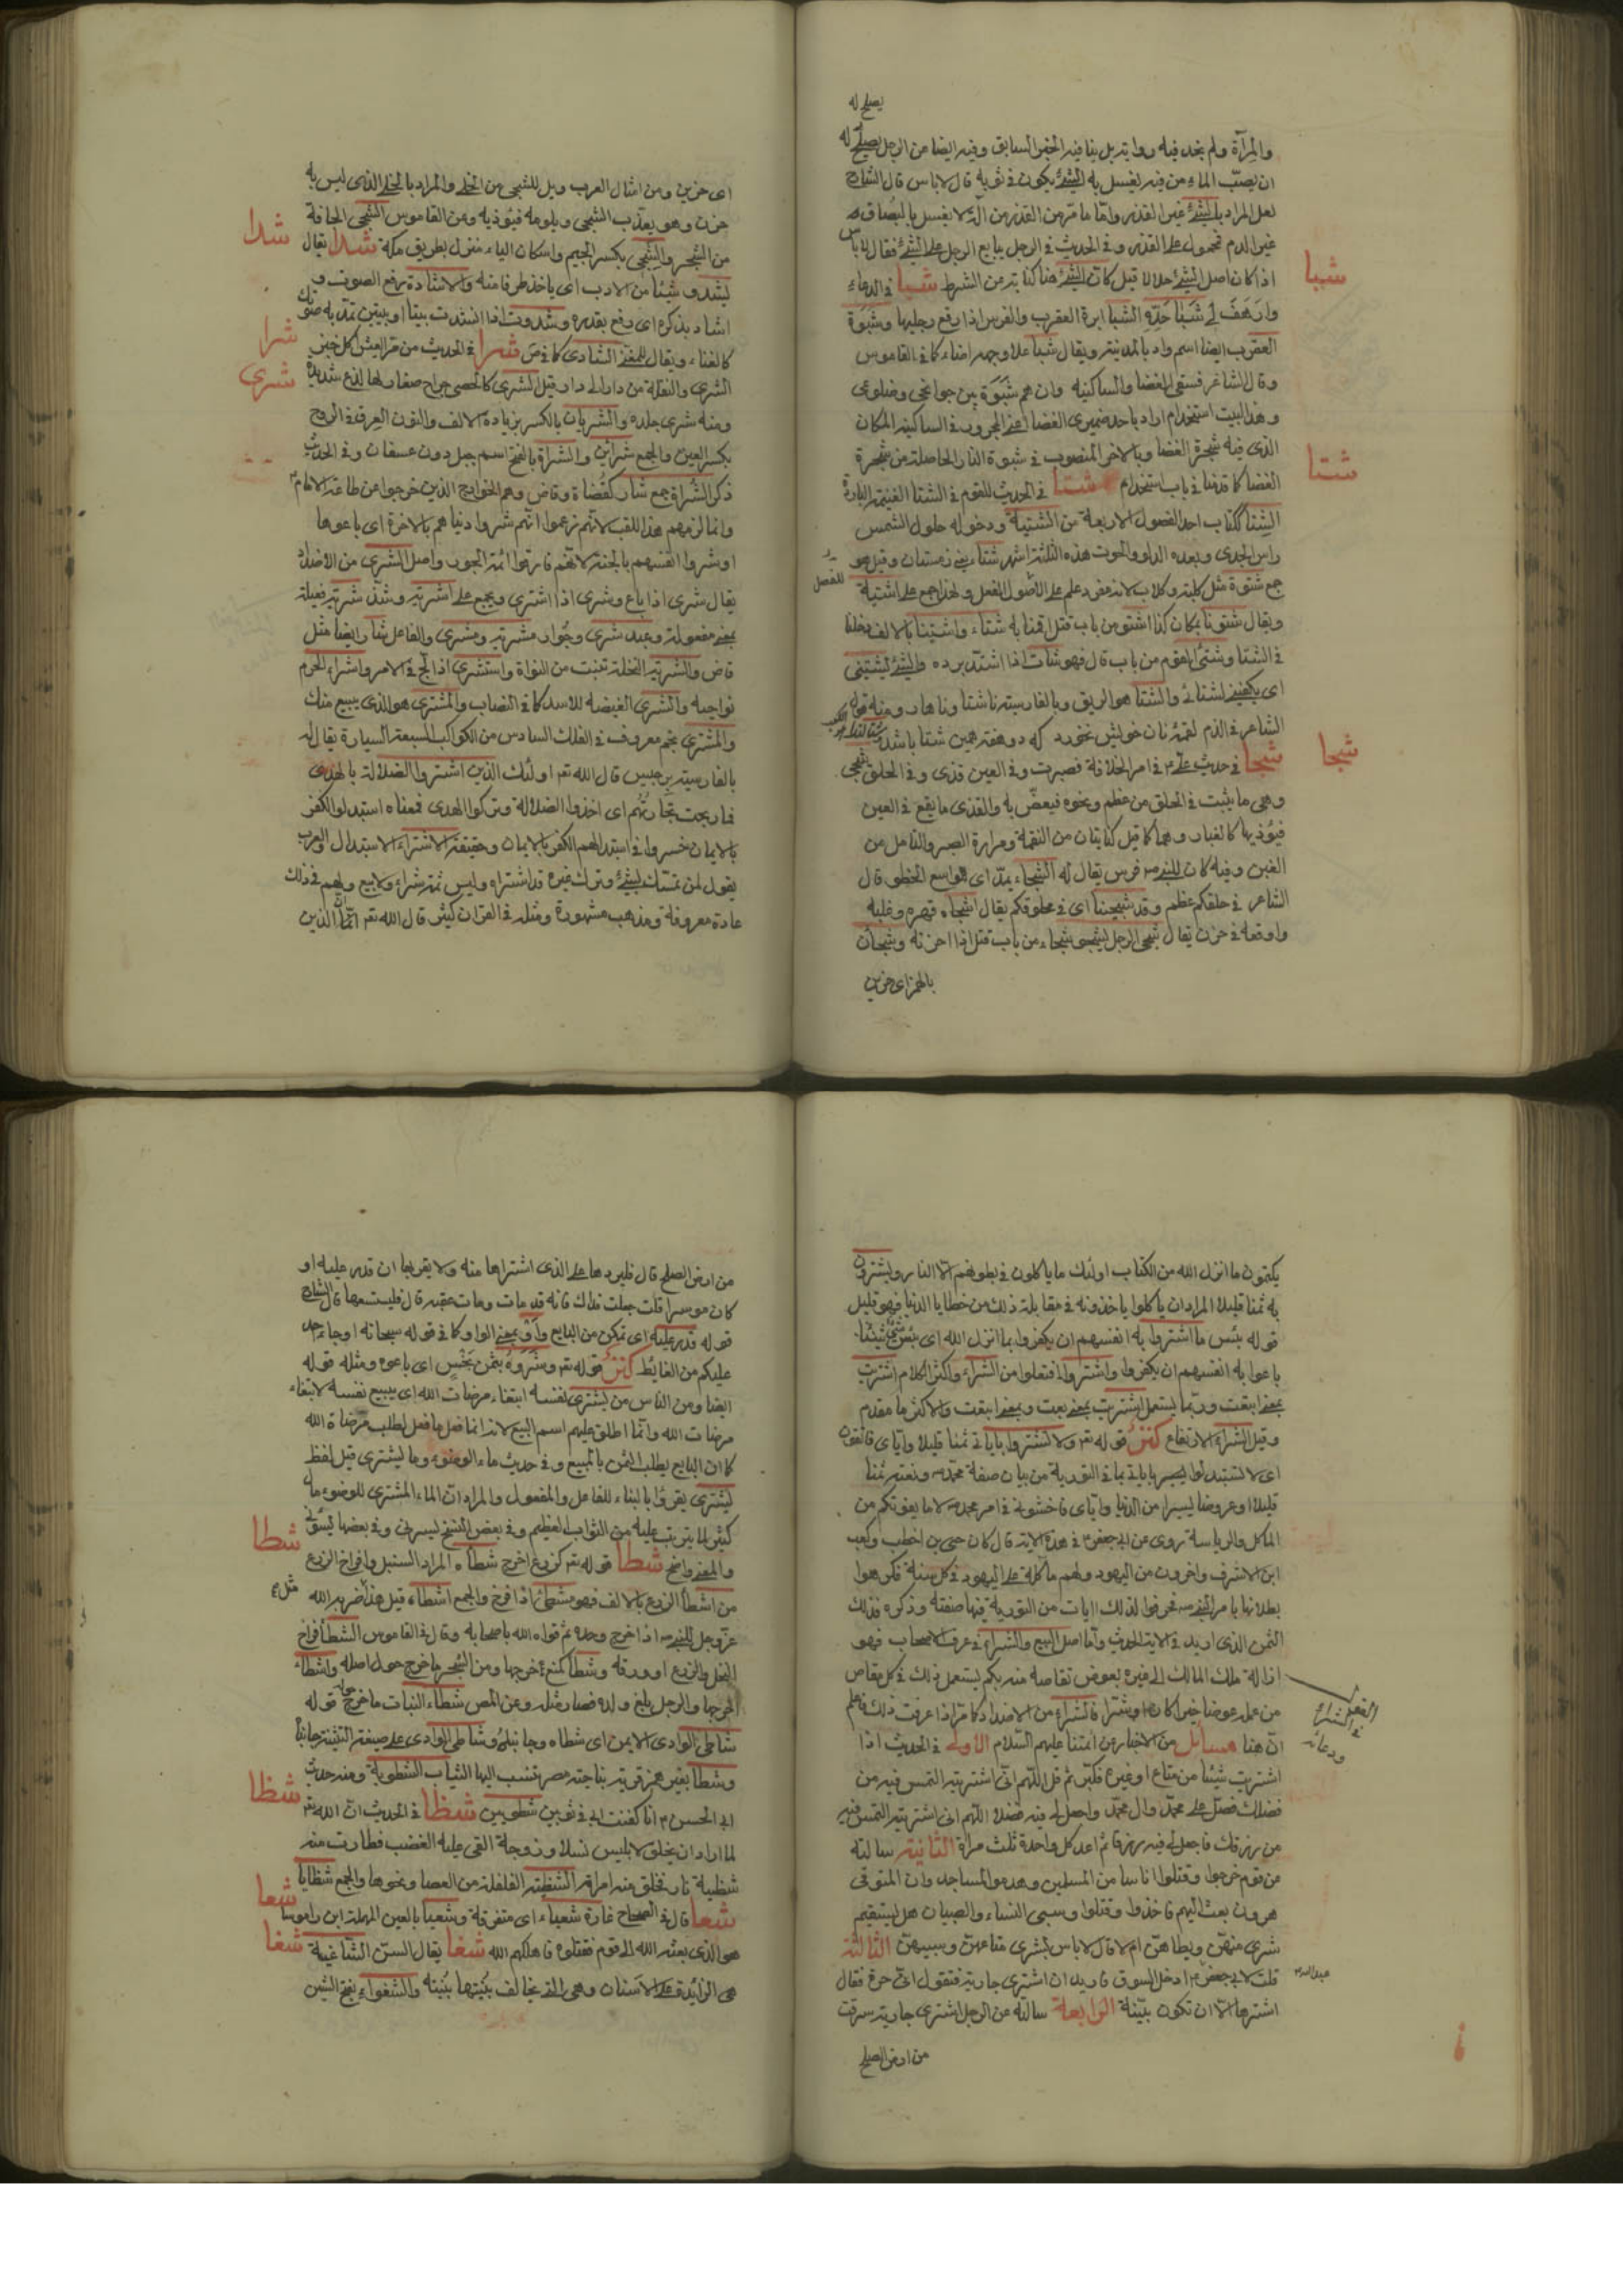 يصلح له
والمرآة ولم نجد فيه رواية بل بنا فيه الخبر السابق وفيه ايضا عن الرجل يصلح له
ان يصبّ الماء من فيه يغسل به الشئ يكون في ثوبه قال لا باس قال الشارح
لعل المراد بالشئ غير القذر وامّا ما مرّ من القذر من انّه لا يغسل بالبُصاق
غير الدم فمحمول على القذر وفي الحديث في الرجل يبايع الرجل على الشئ فقال لا باس
اذا كان اصل الشئ حلالا قيل كانّ الشئ هنا كناية عن الشرط شبا في الدعاء
وارهف لي شَبَا حَدِّه الشبا ابرة العقرب والفرس اذا رفع رجليها وشَبوَة
العقرب ايضا اسم واد بالمدينة ويقال شبا علا وجهه اضاء كما في القاموس
وقال الشاعر فسقى الغضا والساكنيه وان هم شبّوه بين جوانحي وضلوعي
وهذا البيت استخدام اراد باحد ضميري الغضا اعنى المجرور في الساكنيه المكان
الذى فيه شجرة الغضا وبالاخر المنصوب في شبوه النار الحاصلة من شجرة
الغضا كما قدمنا في باب استخدام شتا في الحديث للقوم في الشتا الغنيمة الباردة
الشِتا ككتاب احد الفصول الاربعة من الشتية ودخوله حلول الشمس
راس الجدى وبعده الدلو والحوت هذه الثلثة اشهر شتاء يعنى زمستان وقيل هو
جمع شتوة مثل كلبة وكلاب لانه مفرد علم على الفصل ولهذا جمع على اشتية
ويقال شتونا بمكان كذا اشتو من باب قتل اقمنا به شتاء واشتينا بالالف دخلنا
في الشتا وشتى القوم من باب قال فهو شات اذا اشتدّ برده والشئ يشتينى
اى يكفينى لشتائى والشتا هو الريق وبالفارسية ناشتا وناهار ومنه قول
الشاعر في الذم لقمهٔ نان خويش نخورد كه دو هفته همين شتا باشد
شجا في حديث علىّ ع في امر الخلافة فصبرت وفي العين قذى وفي الحلق شجى
وهى ما ينشب في الحلق من عظم ونحوه فيغصّ به والقذى ما يقع في العين
فيؤذيها كالغبار وهما كما قيل كنايتان عن النقمة ومرارة الصبر والتأمل من
الغبن وفيه كان للنبى ص فرس يقال له الشجاء بمدّ اى الواسع الخطو قال
الشاعر في حلقكم عظم وقد شجينا اى في حلوقكم يقال اشجاه قهره وغلبه
واوقعه في حزن يقال شجى الرجل يشجى شجاء من باب قتل اذا احزنه وشجان
بالهمز اى حزين
شبا
شتا
شجا
اى حزين ومن امثال العرب ويل للشجى من الخلى والمراد بالخلى الذى ليس به
حزن وهو يعذب الشجى ويلومه فيؤذيه وعن القاموس الشجى الحافة
من الشجر والشجى بكسر الجيم واسكان الياء منزل بطريق مكة شدا يقال
يشدو شيئا من الادب اى ياخذ طرفا منه والاشادة رفع الصوت و
اشاد بذكره اى رفع بقدره وشدوت اذا انشدت بيتا او بيتين تمدّ به صوتك
كالغناء ويقال للمغنى الشادى كما في ص شرا في الحديث من مرّ العيش اكل خبز
الشرى والنقلة من دار الى دار وقيل الشرى كالحصى جراح صغار لها لذع شديد
ومنه شرى جلده والشريان بالكسر بزيادة الالف والنون العرق في الروح
بكسر العين والجمع شرائين والشراة بالفتح اسم جبل دون عسفان وفي الحديث
ذكر الشُراة جمع شار كقُضاة وقاض وهم الخوارج الذين خرجوا عن طاعة الامام
وانما لزمهم هذا اللقب لانّهم زعموا انّهم شروا دنياهم بالاخرة اى باعوها
او شروا انفسهم بالجنة لانّهم فارقوا ائمة الجور واصل الشرى من الاضداد
يقال شرى اذا باع وشرى اذا اشترى ويجمع على اشرية وشذّ شرية فعيلة
بمعنى مفعولة وعبد شرى وجوار مشرية ومشرى والفاعل شار ايضا مثل
قاض والشرية النخلة تنبت من النواة واستشرى اذا لجّ في الامر واشراء الحرم
نواحيه والشرى الغيضة للاسد كما في النصاب والمشترى هو الذى يبيع منك
والمشترى نجم معروف في الفلك السادس من الكواكب السبعة السيارة يقال له
بالفارسية برجيس قال الله تعم اولئك الذين اشتروا الضلالة بالهدى
فما ربحت تجارتُهم اى اخذوا الضلالة وتركوا الهدى فمعناه استبدلوا الكفر
بالايمان خسروا في استبدالهم الكفر بالايمان وحقيقة الاشتراء الاستبدال والعرب
يقول لمن تمسّك بشئ وترك غيره قد اشتراه وليس ثمة شراء ولا بيع ولهم في ذلك
عادة معروفة ومذهب مشهورة ومثله في القران كثير قال الله تعم انّما الذين
شدا
شرا
شرى
يكتمون ما انزل الله من الكتاب اولئك ما ياكلون في بطونهم الا النار ويشترون
به ثمنا قليلا المراد ان ياكلوا ياخذونه في مقابلة ذلك من خطايا الدنيا فهو قليل
قوله بئس ما اشتروا به انفسهم ان يكفروا بما انزل الله اى بئس شئ شيئا
باعوا به انفسهم ان يكفروا واشتروا افتعلوا من الشراء واكثر الكلام اشتريت
بمعنى ابتعت وربّما يستعمل اشتريت بمعنى بعت وبمعنى ابتعت والاكثر ما مقدم
وقيل الشراء الارتفاع كنز قوله تعم ولا تشتروا باياتى ثمنا قليلا واياى فاتقون
اى لا تستبدلوا باياتى بما في التورية من بيان صفة محمّد ص ونعته ثمنا
قليلا او عرضا يسيرا من الدنيا واياى فاخشون في امر محمد ص لا ما يفوتكم من
الماكل والرياسة روى عن ابى جعفر ع في هذه الاية قال كان حيى بن اخطب وكعب
ابن الاشرف واخرون من اليهود ولهم مأكلة على اليهود في كل سنة فكرهوا
بطلانها بامر النبى ص فحرفوا لذلك ايات من التورية فيها صفته وذكره فذلك
الثمن الذى اريد في الاية الحديث وامّا اصل البيع والشراء في عرف الاصحاب فهو
ازالة ملك المالك الى غيره بعوض تقاصه منه بكم يستعمل ذلك في كل مقاص
من عمل عوضا خيرا كان او شرا فالشراء من الاضداد كما مرّ اذا عرفت ذلك فاعلم
انّ هنا مسائل من الاخبار عن ائمتنا عليهم السّلام الاولى في الحديث اذا
اشتريت شيئا من متاع او غيره فكبّر ثم قل اللّهم انّى اشتريته التمس فيه من
فضلك فصلّ على محمّد وال محمّد واجعل لى فيه فضلا اللّهم انى اشتريته التمس فيه
من رزقك فاجعل لى فيه رزقا ثم اعد كل واحدة ثلث مراة الثانية سالته
عن قوم خرجوا وقتلوا اناسا من المسلمين وهدموا المساجد وان المتوفى
هرون بعث اليهم فاخذوا وقتلوا وسبى النساء والصبيان هل يستقيم
شرى منهنّ ويطاهنّ ام لا قال لا باس بشرى متاعهنّ وسبيهنّ الثالثة
قلت لابى جعفر ع ادخل السوق فاريد ان اشترى جارية فتقول انى حرة فقال
اشترها الا ان تكون بيّنة الرابعة سالته عن الرجل اشترى جارية سرقت
من ارض الصلح
من ارض الصلح قال فليردها على الذى اشتراها منه ولا يقربها ان قدر عليه او
كان موسرا قلت جعلت فداك فانه قد مات ومات عقبه قال فليستسعها قال الشارح
قوله قدر عليه اى تمكن من البايع واَو بمعنى الواو كما في قوله سبحانه او جاء احد
عليكم من الغايط كنز قوله تعم وشَرَوهُ بثمن بَخْسٍ اى باعوه ومثله قوله
ايضا ومن الناس من يشترى نفسه ابتغاء مرضات الله اى يبيع نفسه لابتغاء
مرضات الله وانّما اطلق عليهم اسم البيع لانه انما فعل ما فعل لطلب مرضاة الله
كما ان البايع يطلب الثمن بالمبيع وفي حديث ماء الوضوء وما يشترى قيل لفظ
يشترى يقرؤا بالبناء للفاعل والمفعول والمراد انّ الماء المشترى للوضوء مال
كثير لما يترتب عليه من الثواب العظيم وفي بعض النسخ ليسرنى وفي بعضها يسوئنى
والمعنى واضح شطا قوله تعم كزرع اخرج شطاه المراد السنبل وافراخ الزرع
من اشطأ الزرع بالالف فهو مشطئ اذا فرخ والجمع اشطاء قيل هذا ضربه الله
عزّ وجل للنبى ص اذا خرج وحده ثم قواه الله باصحابه وقال في القاموس الشطأ فراخ
النخل والزرع او ورقه وشطأ كمنع اخرجها ومن الشجر ما خرج حول اصله واشطاء
اخرجها والرجل بلغ ولده فصار مثله وعن المص شطاء النبات ما خرج قوله
شاطئ الوادى الايمن اى شطاه وجانبه وشاطى الوادى على صيغة التثنية جانباه
وشطا بغير همز قرية بناحية مصر تنسب اليها الثياب الشطوية ومنه حديث
ابى الحسن ع انا كفنت ابى في ثوبين شطويين شظا في الحديث انّ الله تعم
لما اراد ان يخلق لابليس نسلا وزوجة القى عليه الغضب فطارت منه
شظية نار فخلق منه امراة الشظية الفلقة من العصا ونحوها والجمع شظايا
شعا قال في الصحاح غارة شعياء اى متفرقة وشعيا بالعين المهملة ابن راموسا
هو الذى بعثه الله الى قوم فقتلوه فاهلكهم الله شغا يقال السنّ الشاغية
هى الزائدة على الاسنان وهى التى تخالف نبتتها نبتة والشغواء بفتح الشين
شطا
شظا
شعا
شغا